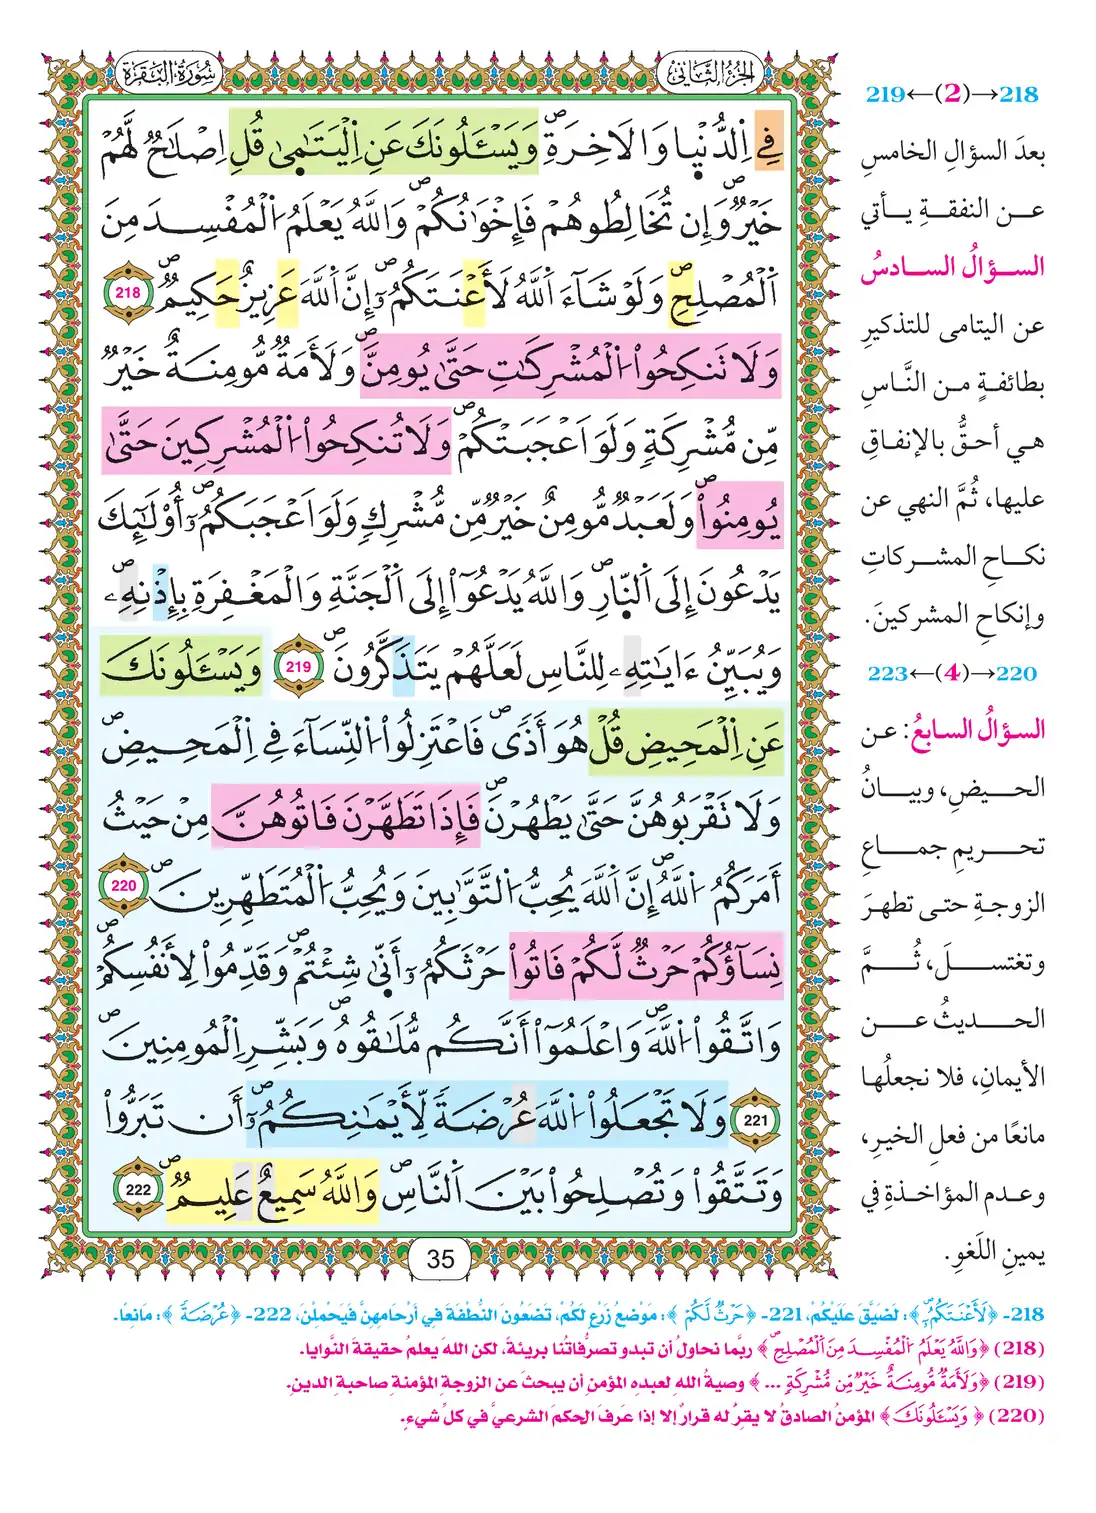 الجزء الثاني
سورة البقرة
فِے اِ۬لدُّنْيَا وَالَاخِرَةِۖ وَيَسْـَٔلُونَكَ عَنِ اِ۬لْيَتَٰمَىٰ قُلِ اِصْلَٰحٞ لَّهُمْ
خَيْرٞۖ وَإِن تُخَالِطُوهُمْ فَإِخْوَٰنُكُمْۖ وَاللَّهُ يَعْلَمُ اُ۬لْمُفْسِدَ مِنَ
اَ۬لْمُصْلِحِۖ وَلَوْ شَآءَ اَ۬للَّهُ لَأَعْنَتَكُمُۥٓۖ إِنَّ اَ۬للَّهَ عَزِيزٌ حَكِيمٞۖ 218
وَلَا تَنكِحُواْ اُ۬لْمُشْرِكَٰتِ حَتَّىٰ يُومِنَّۖ وَلَأَمَةٞ مُّومِنَةٌ خَيْرٞ
مِّن مُّشْرِكَةٖ وَلَوَ اَعْجَبَتْكُمْۖ وَلَا تُنكِحُواْ اُ۬لْمُشْرِكِينَ حَتَّىٰ
يُومِنُواْۖ وَلَعَبْدٞ مُّومِنٌ خَيْرٞ مِّن مُّشْرِكٖ وَلَوَ اَعْجَبَكُمُۥٓۖ أُوْلَٰٓئِكَ
يَدْعُونَ إِلَى اَ۬لنَّارِۖ وَاللَّهُ يَدْعُوٓاْ إِلَى اَ۬لْجَنَّةِ وَالْمَغْفِرَةِ بِإِذْنِهِۦۖ
وَيُبَيِّنُ ءَايَٰتِهِۦ لِلنَّاسِ لَعَلَّهُمْ يَتَذَكَّرُونَۖ 219 وَيَسْـَٔلُونَكَ
عَنِ اِ۬لْمَحِيضِ قُلْ هُوَ أَذٗىۖ فَاعْتَزِلُواْ اُ۬لنِّسَآءَ فِے اِ۬لْمَحِيضِۖ
وَلَا تَقْرَبُوهُنَّ حَتَّىٰ يَطْهُرْنَۖ فَإِذَا تَطَهَّرْنَ فَاتُوهُنَّ مِنْ حَيْثُ
أَمَرَكُمُ اُ۬للَّهُۖ إِنَّ اَ۬للَّهَ يُحِبُّ اُ۬لتَّوَّٰبِينَ وَيُحِبُّ اُ۬لْمُتَطَهِّرِينَۖ 220
نِسَآؤُكُمْ حَرْثٞ لَّكُمْ فَاتُواْ حَرْثَكُمُۥٓ أَنّ۪ىٰ شِئْتُمْۖ وَقَدِّمُواْ لِأَنفُسِكُمْۖ
وَاتَّقُواْ اُ۬للَّهَۖ وَاعْلَمُوٓاْ أَنَّكُم مُّلَٰقُوهُۖ وَبَشِّرِ اِ۬لْمُومِنِينَۖ
221 وَلَا تَجْعَلُواْ اُ۬للَّهَ عُرْضَةٗ لِّأَيْمَٰنِكُمُۥٓۖ أَن تَبَرُّواْ
وَتَتَّقُواْ وَتُصْلِحُواْ بَيْنَ اَ۬لنَّاسِۖ وَاللَّهُ سَمِيعٌ عَلِيمٞۖ 222
35
218→(2)←219
بعدَ السؤالِ الخامسِ
عن النفقةِ يأتي
السؤالُ السادسُ
عن اليتامى للتذكيرِ
بطائفةٍ من النَّاسِ
هي أحقُّ بالإنفاقِ
عليها، ثُمَّ النهي عن
نكاحِ المشركاتِ
وإنكاحِ المشركينَ.
220→(4)←223
السؤالُ السابعُ: عن
الحيضِ، وبيانُ
تحريمِ جماعِ
الزوجةِ حتى تطهرَ
وتغتسلَ، ثُمَّ
الحديثُ عن
الأيمانِ، فلا نجعلُها
مانعًا من فعلِ الخيرِ،
وعدم المؤاخذةِ في
يمينِ اللَغوِ.
218- ﴿لَأَعْنَتَكُمُۥٓ﴾: لَضَيَّقَ عَلَيْكُمْ، 221- ﴿حَرْثٞ لَّكُمْ﴾: مَوْضِعُ زَرْعٍ لَكُمْ، تَضَعُونَ النُّطْفَةَ في أَرْحَامِهِنَّ فَيَحْمِلْنَ، 222- ﴿عُرْضَةٗ﴾: مَانِعًا.
(218) ﴿وَاللَّهُ يَعْلَمُ اُ۬لْمُفْسِدَ مِنَ اَ۬لْمُصْلِحِۖ﴾ ربَّما نحاولُ أن تبدو تصرفاتُنا بريئةً، لكن اللهَ يعلمُ حقيقةَ النَّوايا.
(219) ﴿وَلَأَمَةٞ مُّومِنَةٌ خَيْرٞ مِّن مُّشْرِكَةٖ ...﴾ وصيةُ اللهِ لعبدِه المؤمنِ أن يبحثَ عن الزوجةِ المؤمنةِ صاحبةِ الدينِ.
(220) ﴿وَيَسْـَٔلُونَكَ﴾ المؤمنُ الصادقُ لا يقرُّ له قرارٌ إلا إذا عَرفَ الحكمَ الشرعيَّ في كلِّ شيءٍ.